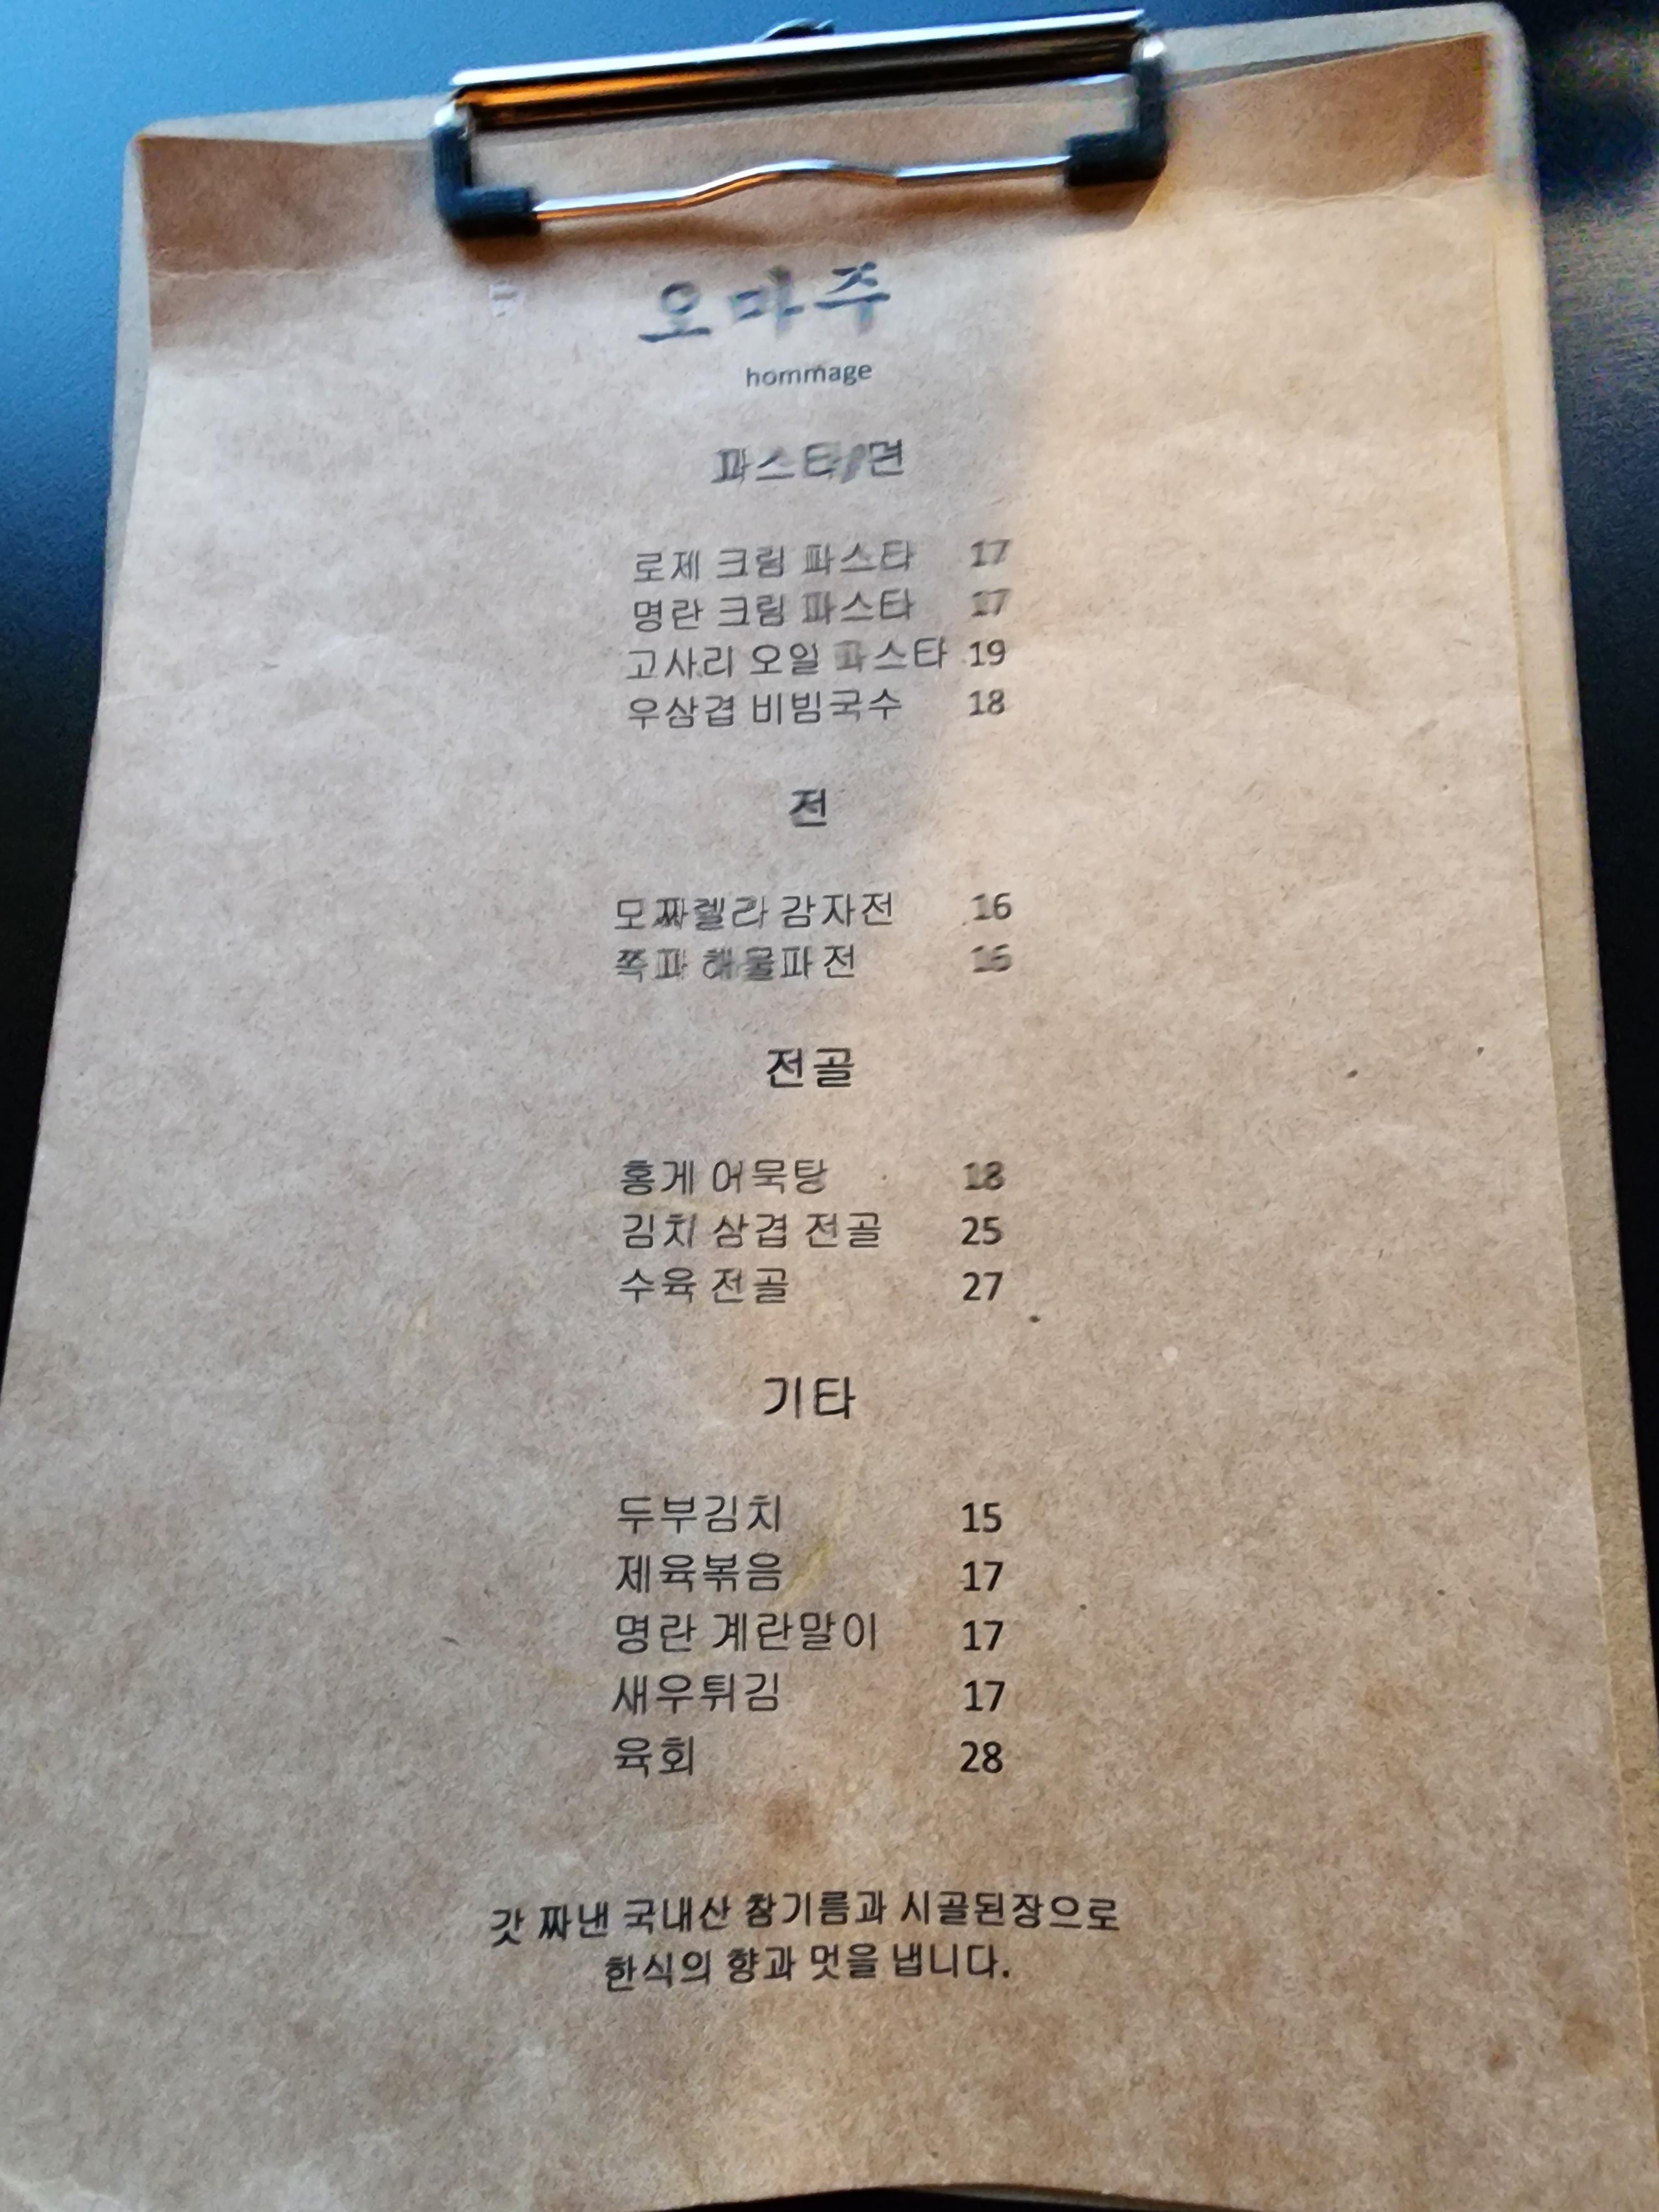 오마주
hommage
파스타/면
로제 크림 파스타 17
명란 크림 파스타 17
고사리 오일 파스타 19
우삼겹 비빔국수 18
전
모짜렐라 감자전 16
쪽파 해물파전 16
전골
홍게 어묵탕 18
김치 삼겹 전골 25
수육 전골 27
기타
두부김치 15
제육볶음 17
명란 계란말이 17
새우튀김 17
육회 28
갓 짜낸 국내산 참기름과 시골된장으로
한식의 향과 멋을 냅니다.